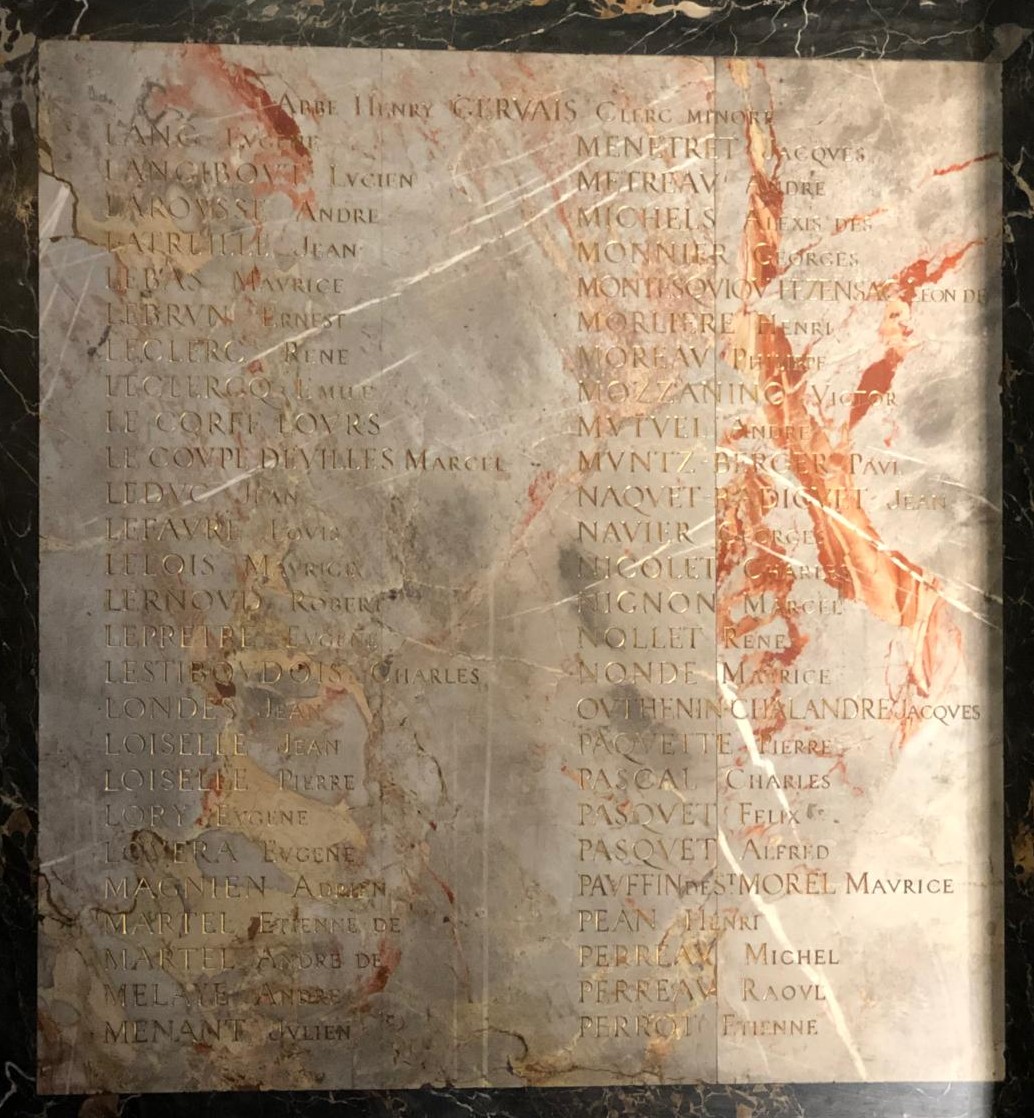 ABBE HENRY GERVAIS CLERC MINORE
LANG EVGENE
LANGIBOVT LVCIEN
LAROVSSE ANDRE
LATREILLE JEAN
LEBAS MAVRICE
LEBRVN ERNEST
LECLERC RENE
LECLERCQ EMILE
LE CORFF LOVRS
LE COVPE DEVILLES MARCEL
LEDVC JEAN
LEFAVRE LOVIS
LELOIS MAVRICE
LERNOVD ROBERT
LEPRETRE EVGENE
LESTIBOVDOIS CHARLES
LONDES JEAN
LOISELLE JEAN
LOISELLE PIERRE
LORY EVGENE
LOVERA EVGENE
MAGNIEN ADRIEN
MARTEL ETIENNE DE
MARTEL ANDRE DE
MELAYE ANDRE
MENANT JVLIEN
MENETRET JACQVES
METREAV ANDRE
MICHELS ALEXIS DES
MONNIER GEORGES
MONTESQVIOV FEZENSAC LEON DE
MORLIERE HENRI
MOREAV PHILIPPE
MOZZANINO VICTOR
MVTVEL ANDRE
MVNTZ-BERGER PAVL
NAQVET-RADIGVET JEAN
NAVIER GEORGES
NICOLET CHARLES
NIGNON MARCEL
NOLLET RENE
NONDE MAVRICE
OVTHENIN-CHALANDRE JACQVES
PAQVETTE PIERRE
PASCAL CHARLES
PASQVET FELIX
PASQVET ALFRED
PAVFFIN DE ST MOREL MAVRICE
PEAN HENRI
PERREAV MICHEL
PERREAV RAOVL
PERROT ETIENNE